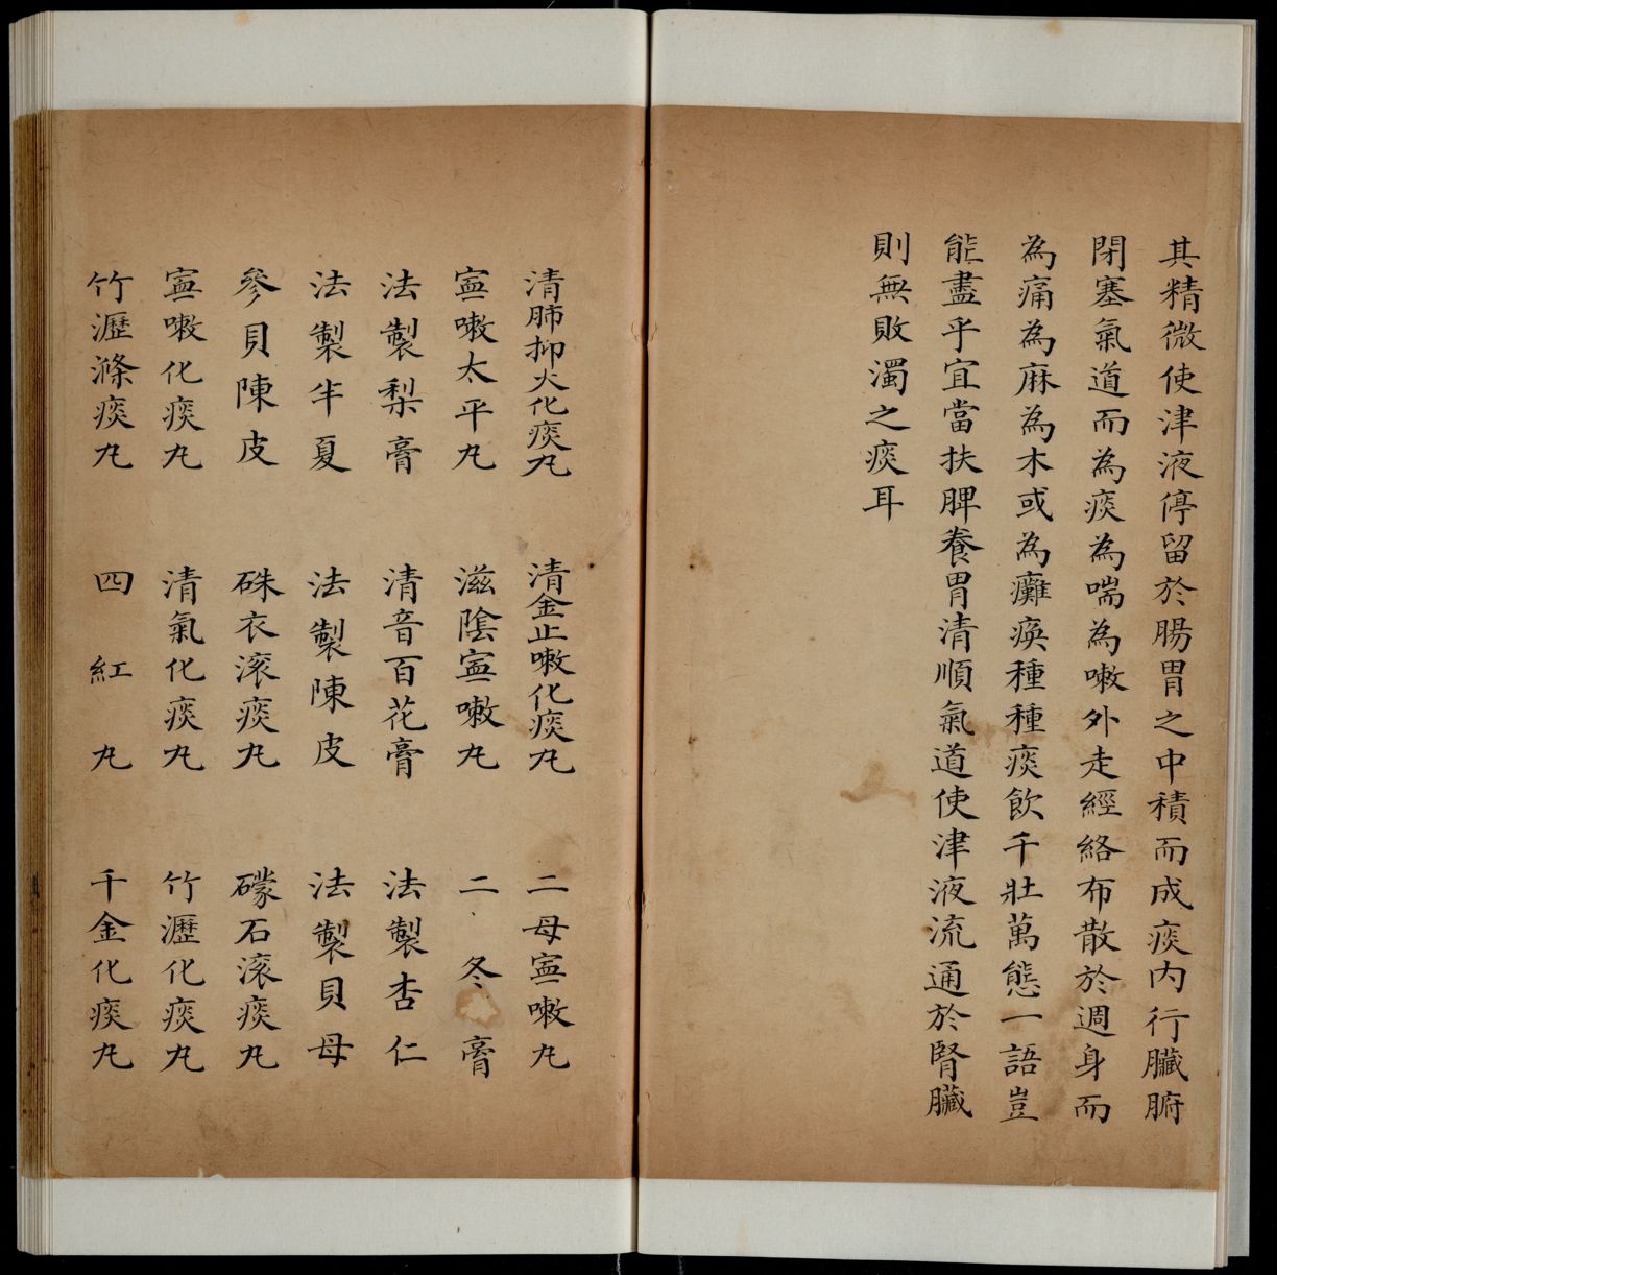 其精微使津液停留於腸胃之中積而成痰内行臟腑
閉塞氣道而為痰為喘為嗽外走經絡布散於週身而
為痛為麻為木或為癱瘓種種痰飲千壯萬態一語豈
能盡乎宜當扶脾養胃清順氣道使津液流通於腎臟
則無敗濁之痰耳
清肺抑火化痰丸 清金止嗽化痰丸 二母寍嗽丸
寍嗽太平丸 滋陰寍嗽丸 二冬膏
法製梨膏 清音百花膏 法製杏仁
法製半夏 法製陳皮 法製貝母
參貝陳皮 硃衣滚痰丸 礞石滚痰丸
寍嗽化痰丸 清氣化痰丸 竹瀝化痰丸
竹瀝滌痰丸 四紅丸 千金化痰丸